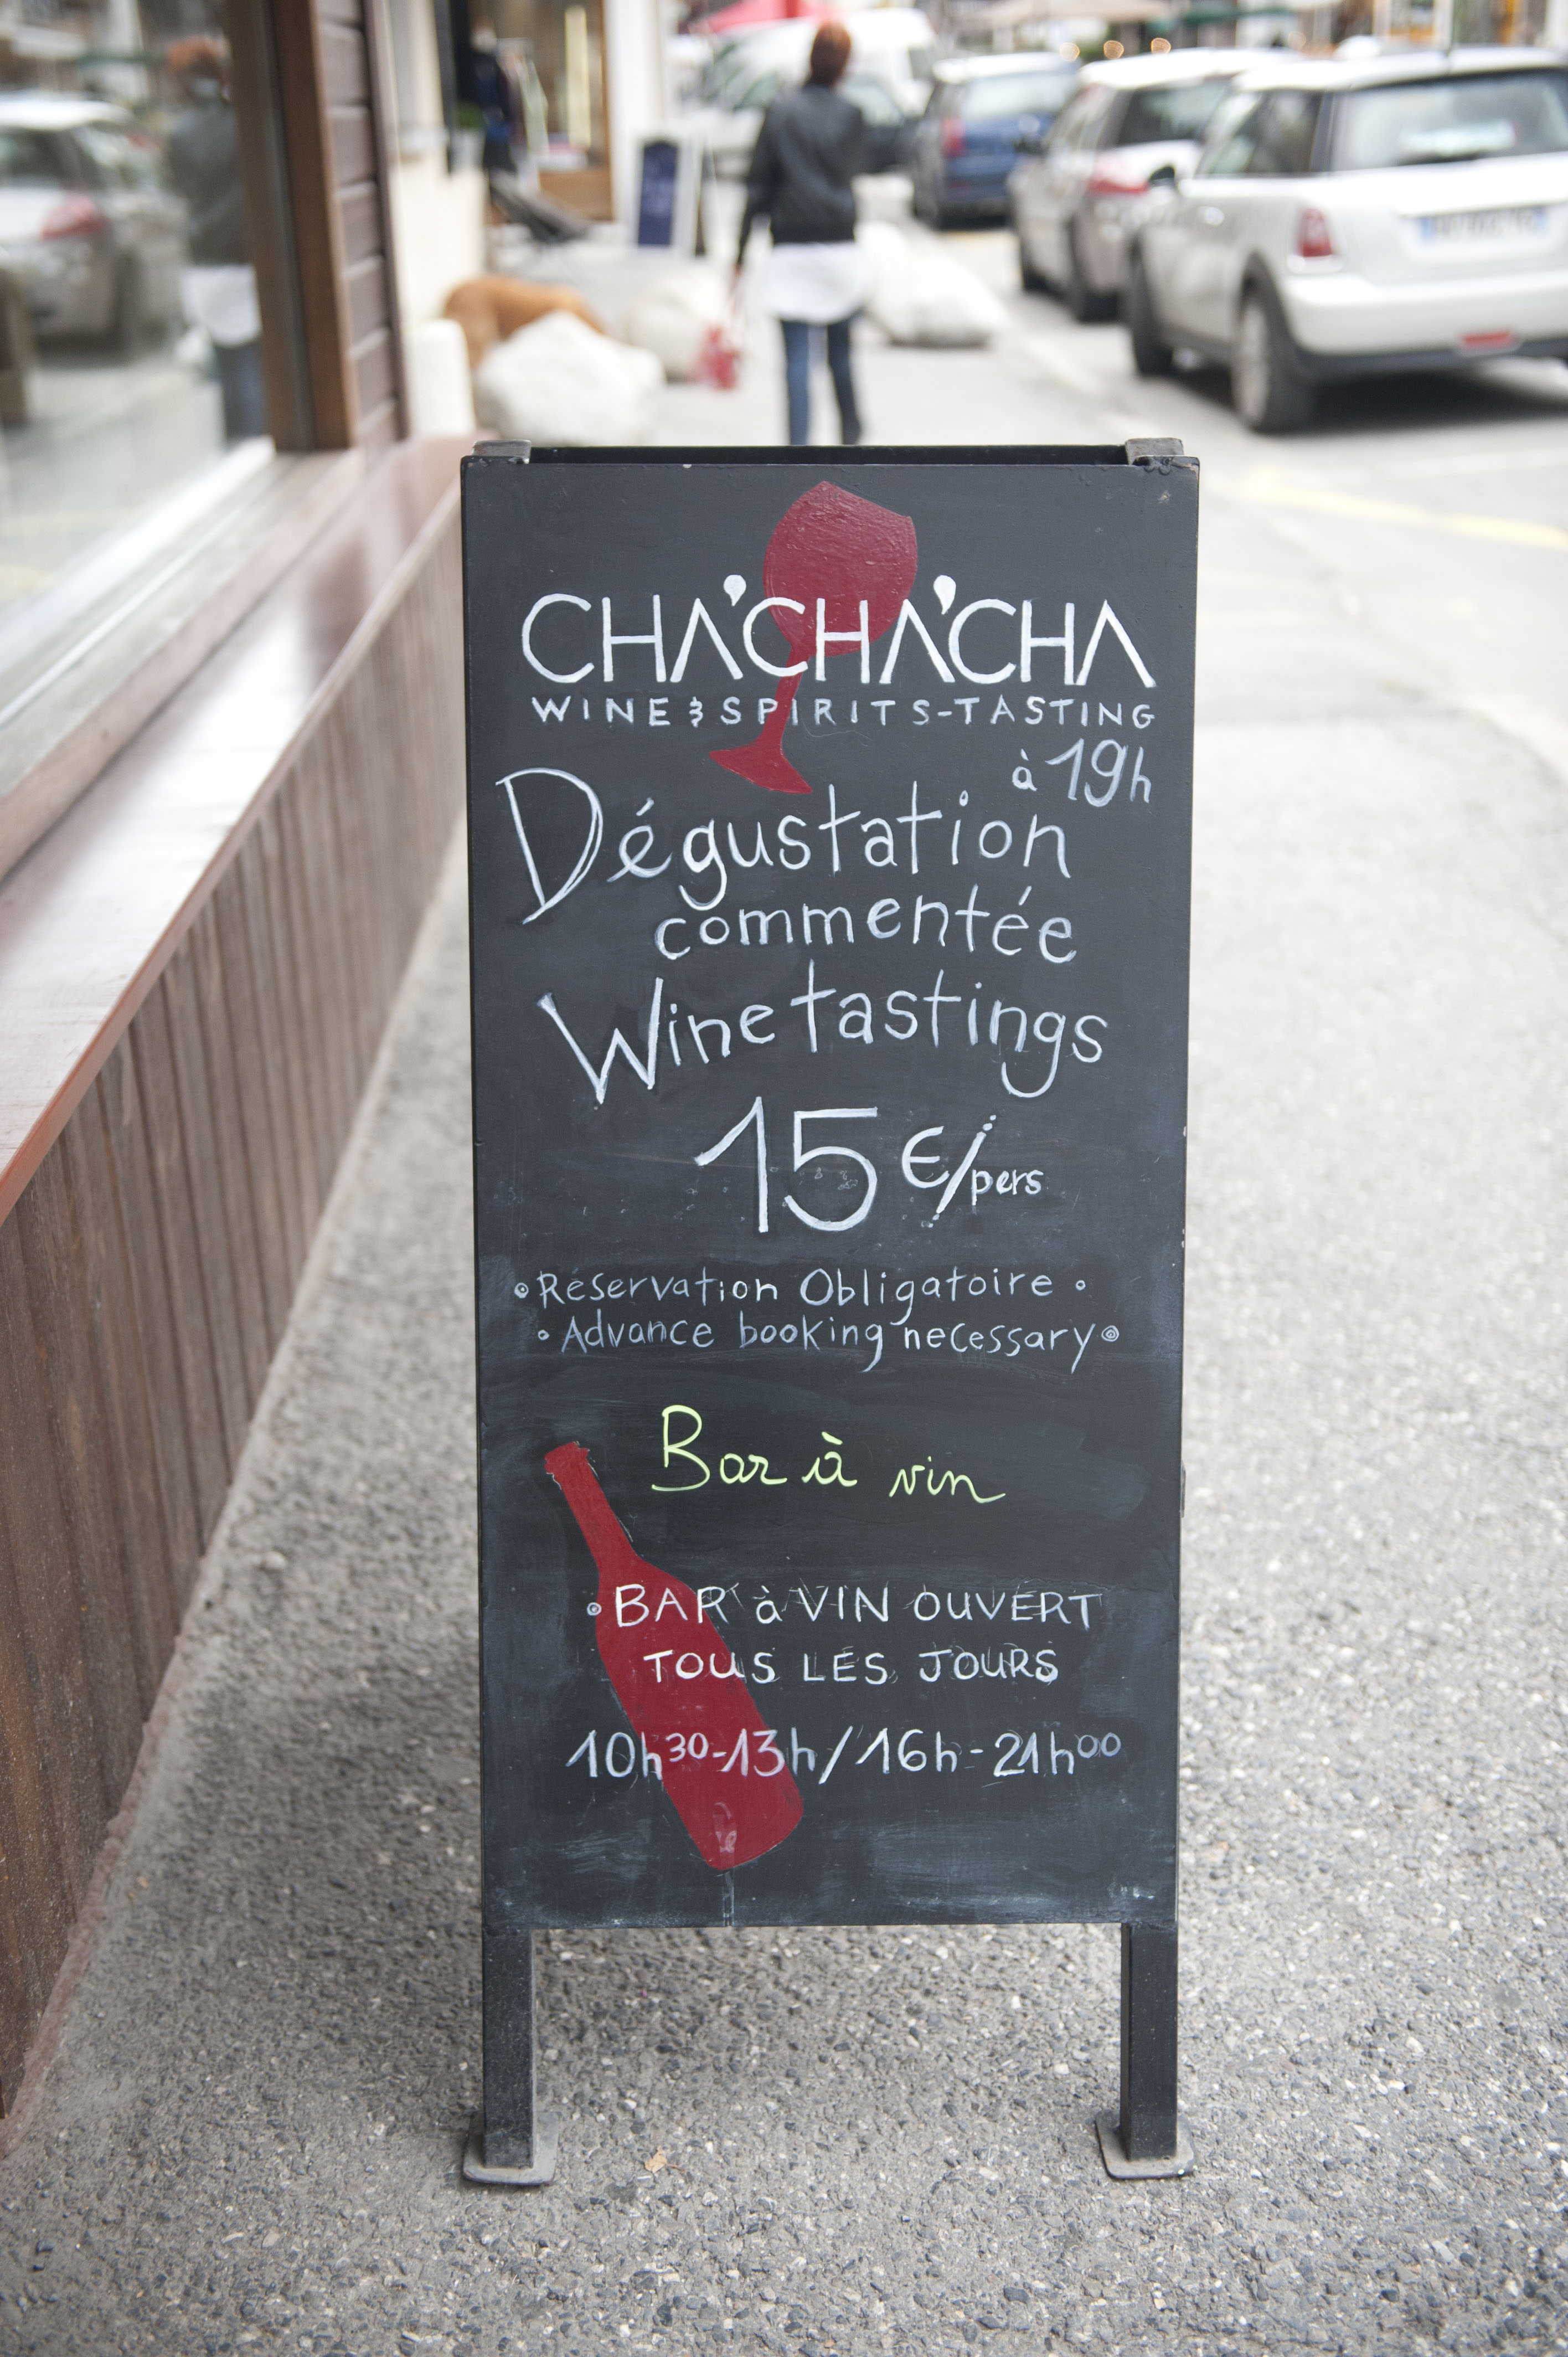 CHA'CHA'CHA
WINE & SPIRITS-TASTING
à 19h
Dégustation
commentée
Wine tastings
15 €/pers
• Réservation Obligatoire •
• Advance booking necessary •
Bar à vin
• BAR à VIN OUVERT
TOUS LES JOURS
10h30-13h/16h-21h00